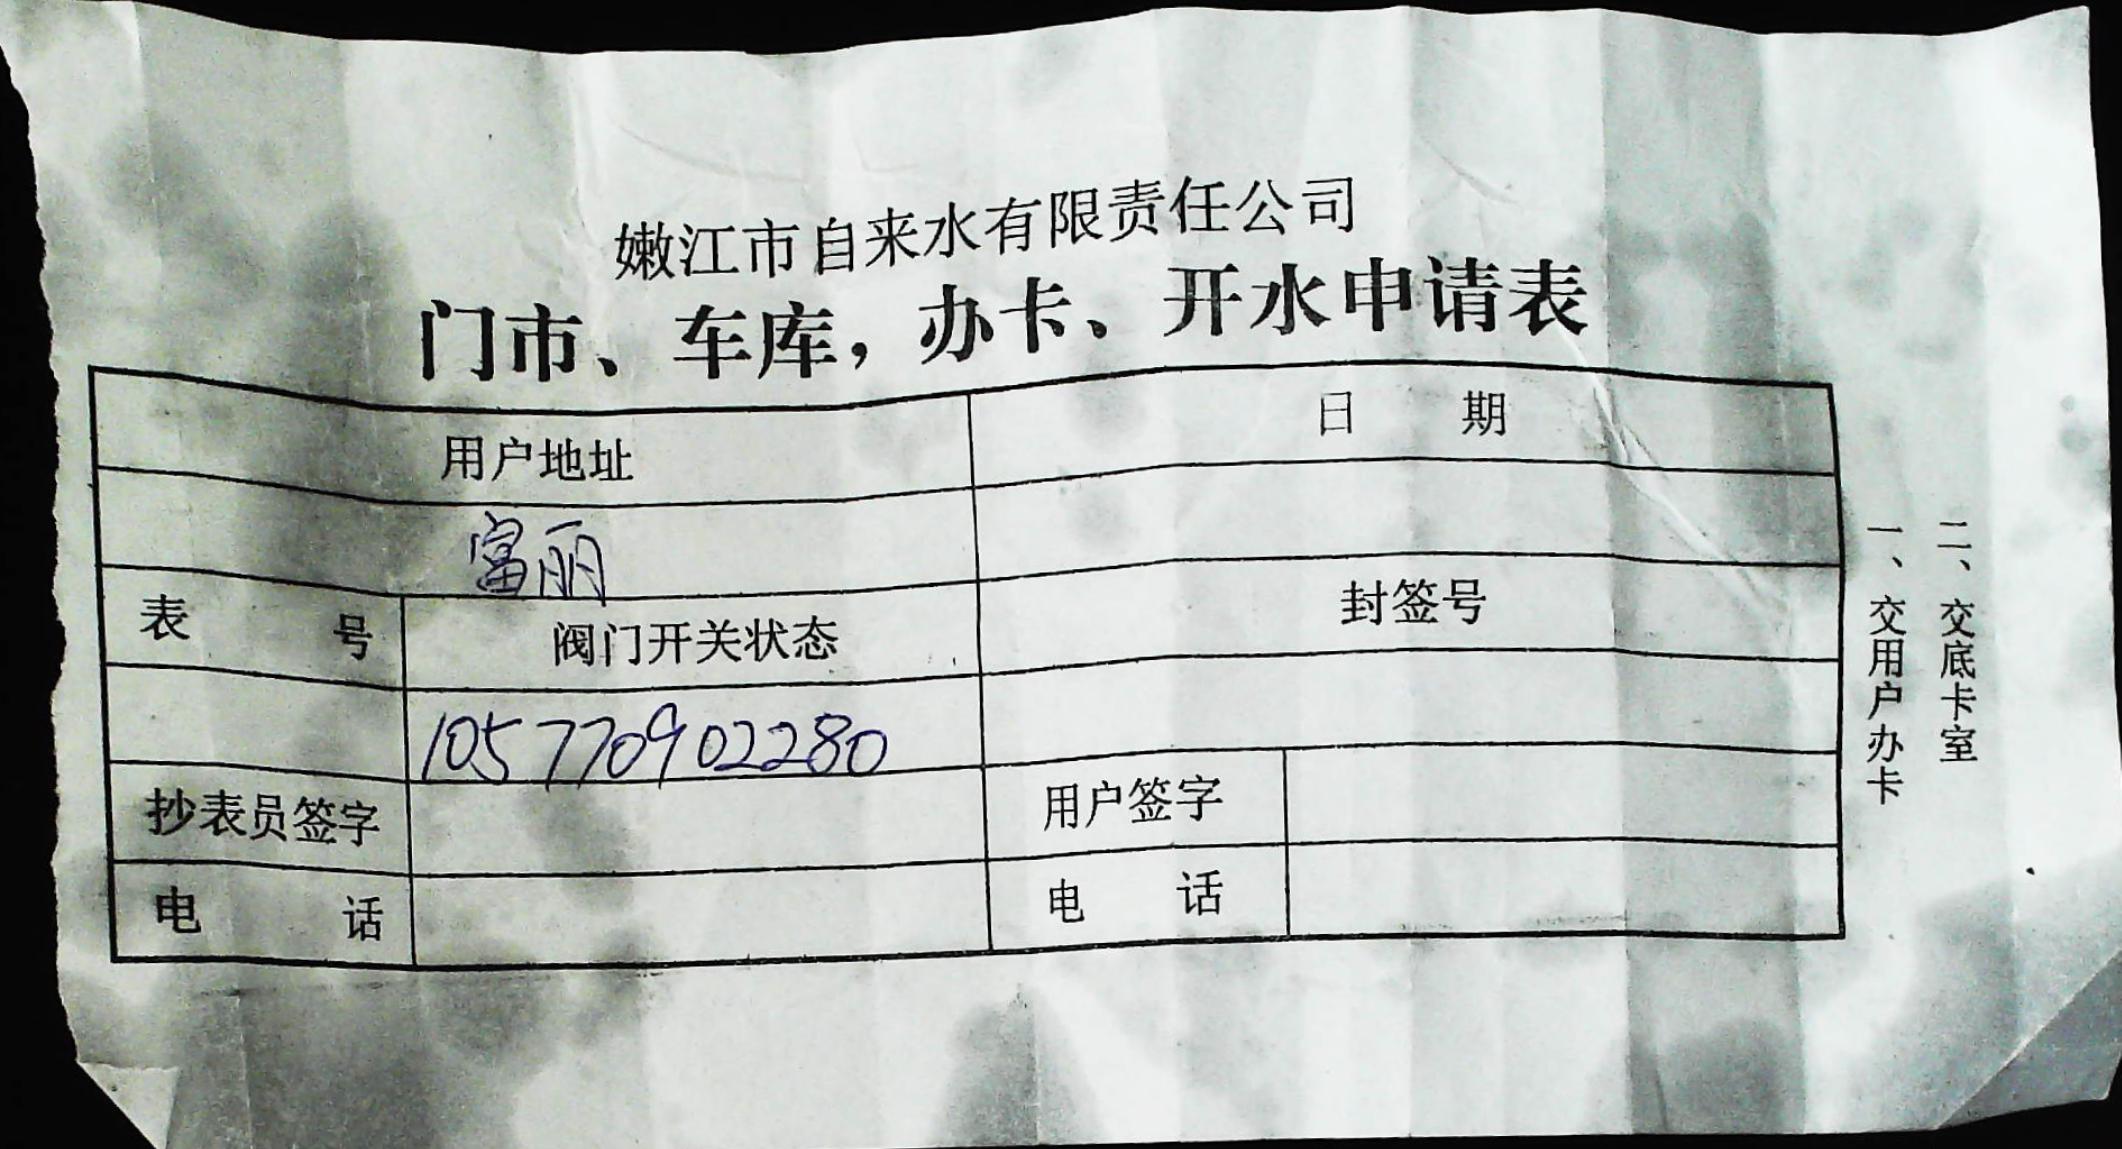 嫩江市自来水有限责任公司
门市、车库，办卡、开水申请表
用户地址 日 期
富丽
表 号 阀门开关状态 封签号
105770902280
抄表员签字 用户签字
电 话 电 话
一、交用户办卡
二、交底卡室